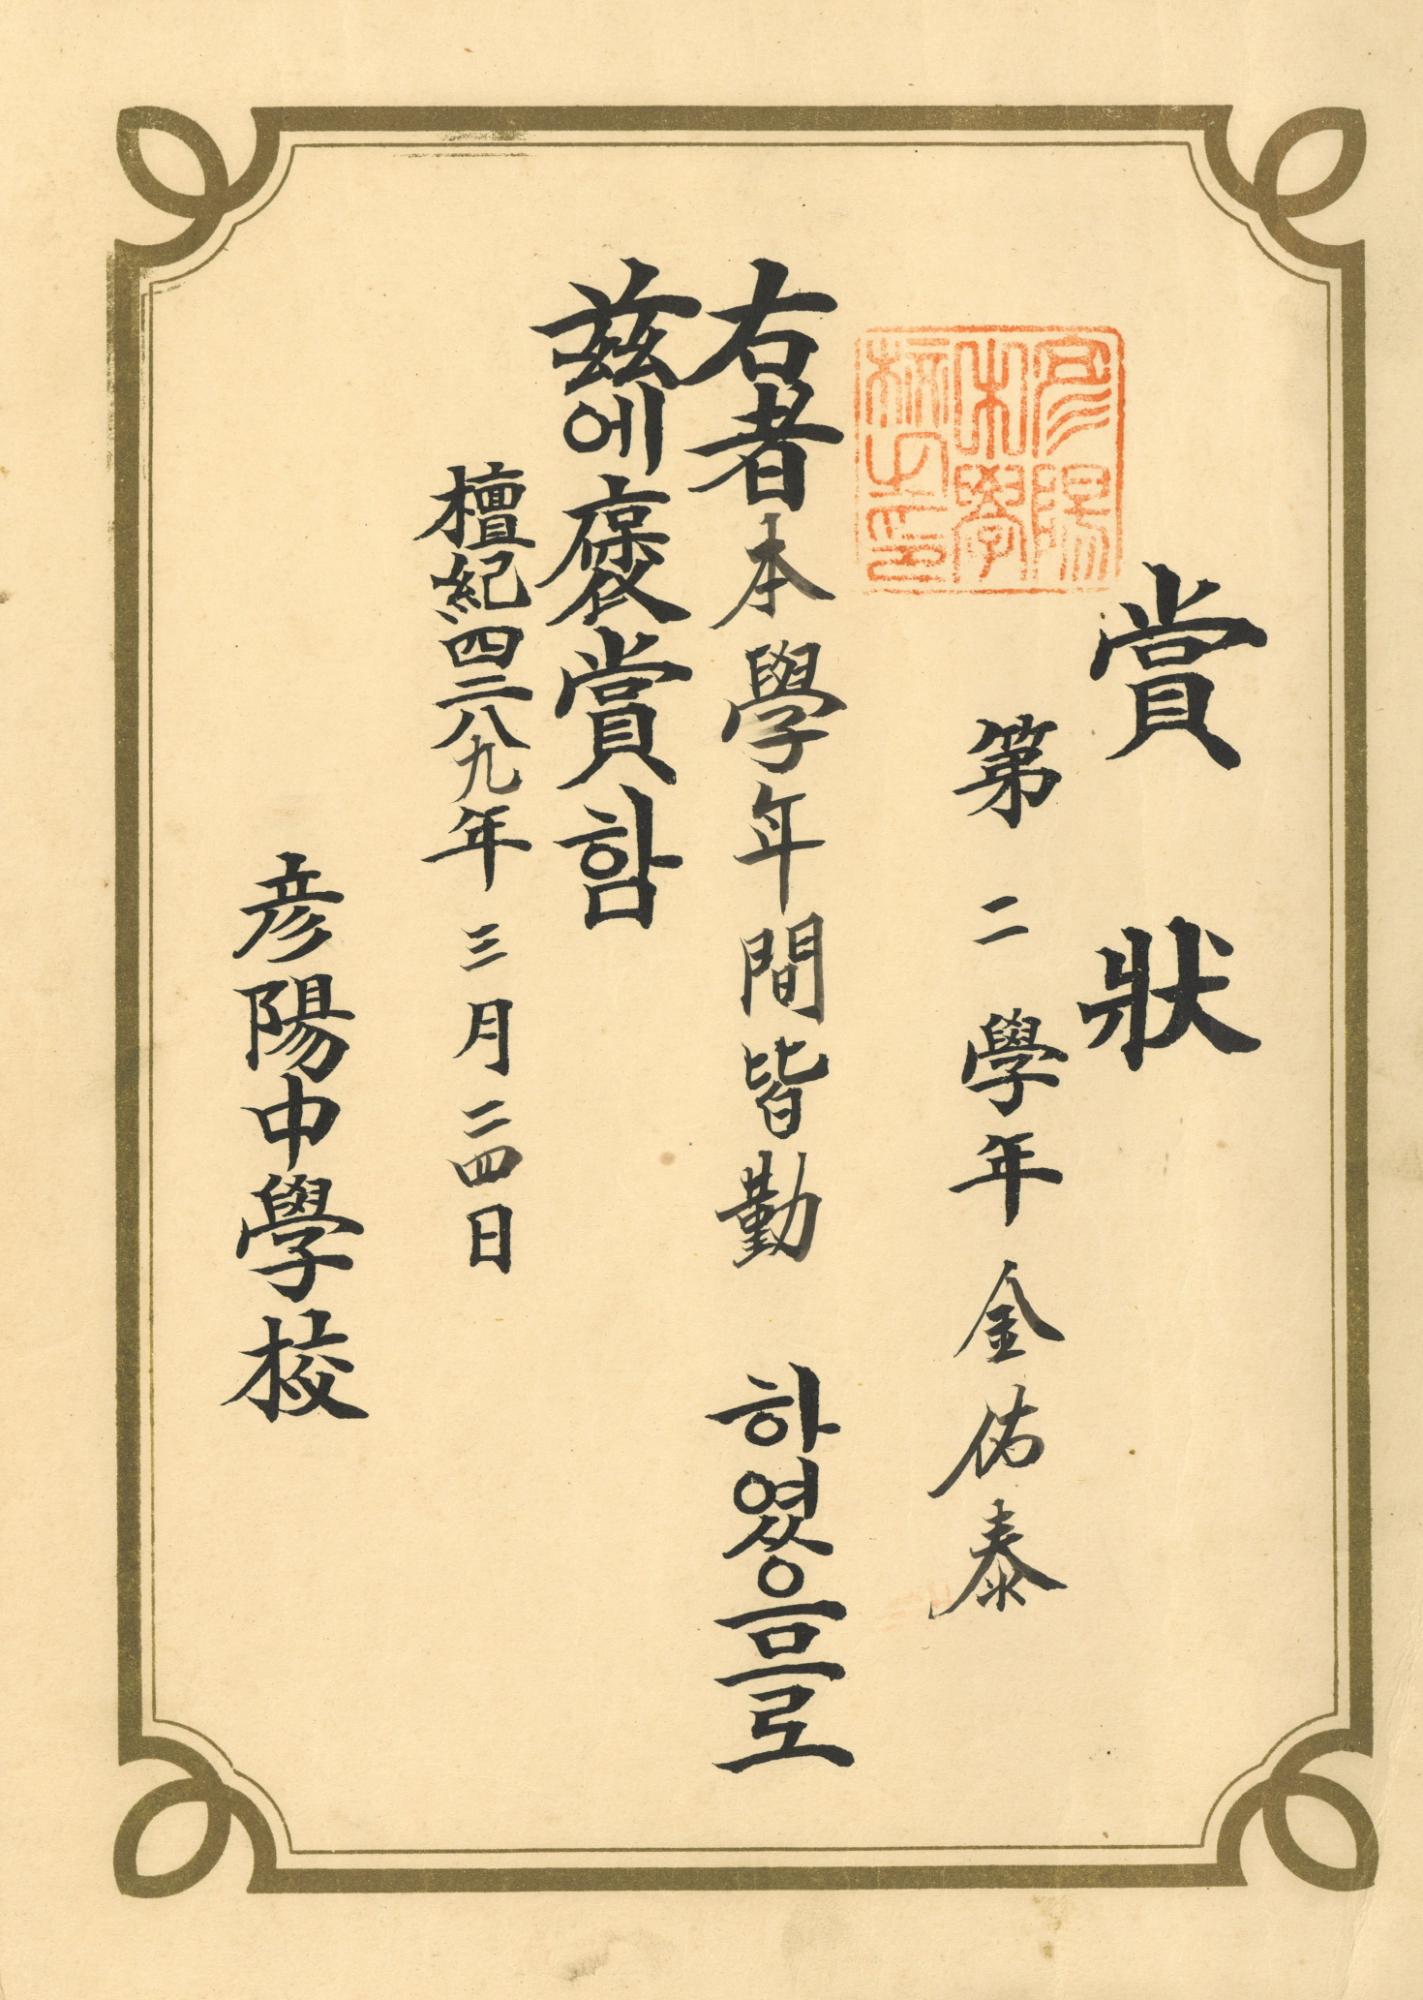 賞狀
第二學年 金佑泰
右者本學年間皆勤 하였음므로
玆에褒賞함
檀紀四二八九年 三月二四日
彦陽中學校
彦陽中學校之印